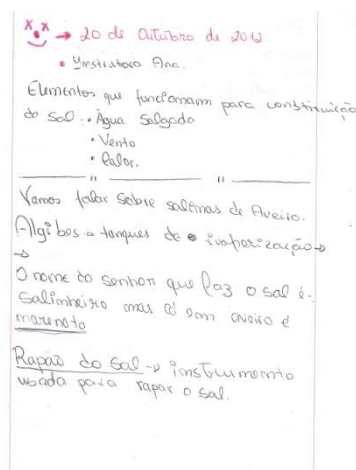 → 20 de Outubro de 2012
• Ynstrutora Ana.
Elementos que funcionam para constituição
do sal: • Água Salgada
• Vento
• Calor.
Vamos falar sobre salinas de Aveiro.
Algibes → tanques de evaporização →
→
O nome do senhor que faz o sal é.
Salinheiro mas em aveiro é
marenoto
Rapão do Sal → instrumento
usada para rapar o sal.